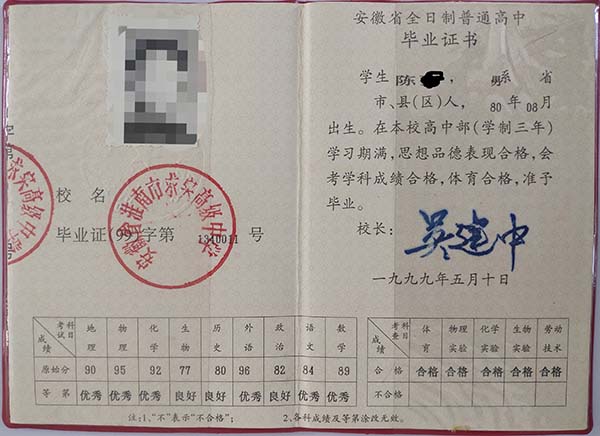 安徽省淮南市蔡家高级中学
校名
毕业证(99)字第 1340011 号
安徽省全日制普通高中
毕业证书
学生 陈 , 男系 省
市、县(区)人, 80年08月
出生。在本校高中部(学制三年)
学习期满,思想品德表现合格,会
考学科成绩合格,体育合格,准予
毕业。
校长: 吴建中
一九九九年五月十日
成绩 考试科目 地理 物理 化学 生物 历史 外语 政治 语文 数学
原始分 90 95 92 77 80 96 82 84 89
等第 优秀 优秀 优秀 良好 良好 优秀 良好 优秀 优秀
成绩 考查科目 体育 物理实验 化学实验 生物实验 劳动技术
合格 合格 合格 合格 合格 合格
不合格
注:1、“不”表示“不合格”; 2、各科成绩及等第涂改无效。